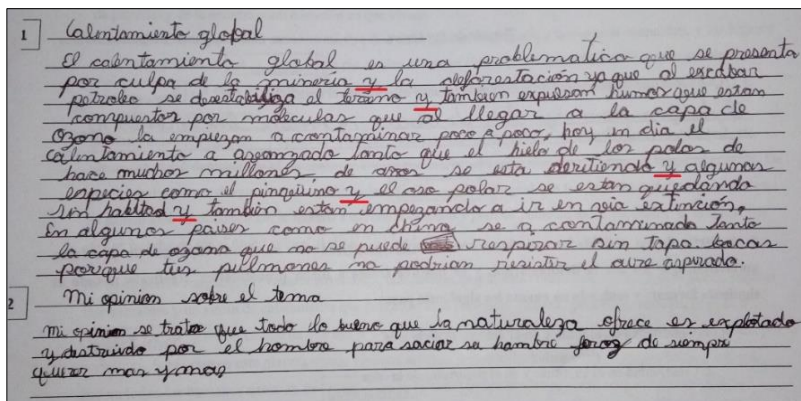 1 Calentamiento global
El calentamiento global es una problematica que se presenta
por culpa de la minería y la deforestación ya que al escabar
petroleo se desestabiliza el terreno y tambien expulsan humos que estan
compuestos por moleculas que al llegar a la capa de
ozono la empiezan a contaminar poco a poco, hoy en dia el
calentamiento a abanzado tanto que el hielo de los polos de
hace muchos millones de años se esta deritiendo y algunas
especies como el pingüino y el oso polar se estan quedando
sin habitad y tambien estan empezando a ir en via extinción,
En algunos paises como en china se a contaminado tanto
la capa de ozono que no se puede respirar sin tapa bocas
porque tus pulmones no podrian resistir el aire aspirado.
2 mi opinion sobre el tema
mi opinion se trata que todo lo bueno que la naturaleza ofrece es explotado
y destruido por el hombre para saciar su hambre feroz de siempre
querer mas y mas